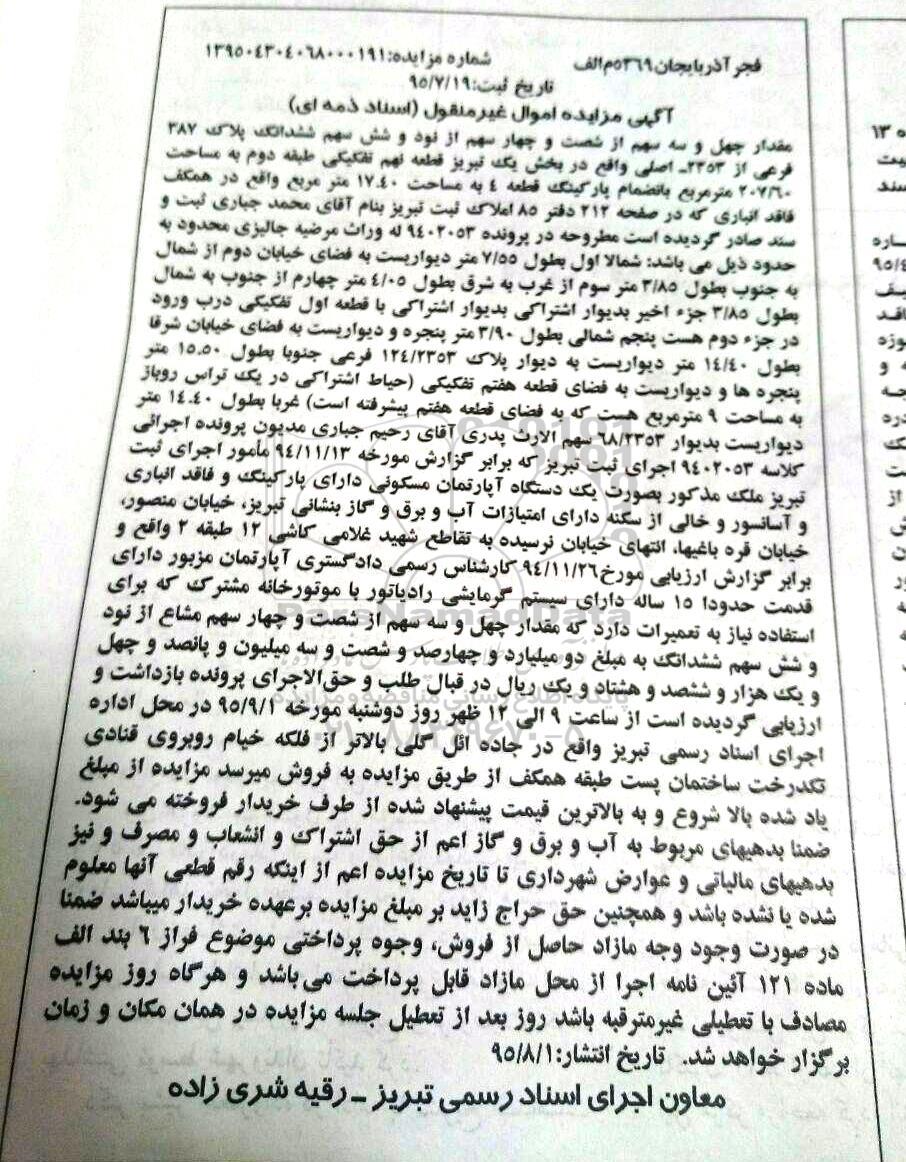 فجر آذربایجان۵۳۶۹م‌الف
شماره مزایده:۱۳۹۵۰۴۳۰۴۰۶۸۰۰۰۱۹۱
تاریخ ثبت:۹۵/۷/۱۹
آگهی مزایده اموال غیرمنقول (اسناد ذمه ای)
مقدار چهل و سه سهم از شصت و چهار سهم از نود و شش سهم ششدانگ پلاک ۳۸۷
فرعی از ۲۳۵۳ـ اصلی واقع در بخش یک تبریز قطعه نهم تفکیکی طبقه دوم به مساحت
۲۰۷/۶۰ مترمربع بانضمام پارکینگ قطعه ۴ به مساحت ۱۷.۴۰ متر مربع واقع در همکف
فاقد انباری که در صفحه ۲۱۲ دفتر ۸۵ املاک ثبت تبریز بنام آقای محمد جباری ثبت و
سند صادر گردیده است مطروحه در پرونده ۹۴۰۲۰۵۳ له وراث مرضیه جالیزی محدود به
حدود ذیل می باشد: شمالا اول بطول ۷/۵۵ متر دیواریست به فضای خیابان دوم از شمال
به جنوب بطول ۳/۸۵ متر سوم از غرب به شرق بطول ۴/۰۵ متر چهارم از جنوب به شمال
بطول ۳/۸۵ جزء اخیر بدیوار اشتراکی بدیوار اشتراکی با قطعه اول تفکیکی درب ورود
در جزء دوم هست پنجم شمالی بطول ۳/۹۰ متر پنجره و دیواریست به فضای خیابان شرقا
بطول ۱۴/۴۰ متر دیواریست به دیوار پلاک ۱۲۴/۲۳۵۳ فرعی جنوبا بطول ۱۵.۵۰ متر
پنجره ها و دیواریست به فضای قطعه هفتم تفکیکی (حیاط اشتراکی در یک تراس روباز
به مساحت ۹ مترمربع هست که به فضای قطعه هفتم پیشرفته است) غربا بطول ۱۴.۴۰ متر
دیواریست بدیوار ۶۸/۲۳۵۳ سهم الارث پدری آقای رحیم جباری مدیون پرونده اجرائی
کلاسه ۹۴۰۲۰۵۳ اجرای ثبت تبریز که برابر گزارش مورخه ۹۴/۱۱/۱۳ مأمور اجرای ثبت
تبریز ملک مذکور بصورت یک دستگاه آپارتمان مسکونی دارای پارکینگ و فاقد انباری
و آسانسور و خالی از سکنه دارای امتیازات آب و برق و گاز بنشانی تبریز، خیابان منصور،
خیابان قره باغیها، انتهای خیابان نرسیده به تقاطع شهید غلامی کاشی ۱۲ طبقه ۲ واقع و
برابر گزارش ارزیابی مورخ۹۴/۱۱/۲۶ کارشناس رسمی دادگستری آپارتمان مزبور دارای
قدمت حدودا ۱۵ ساله دارای سیستم گرمایشی رادیاتور با موتورخانه مشترک که برای
استفاده نیاز به تعمیرات دارد که مقدار چهل و سه سهم از شصت و چهار سهم مشاع از نود
و شش سهم ششدانگ به مبلغ دو میلیارد و چهارصد و شصت و سه میلیون و پانصد و چهل
و یک هزار و ششصد و هشتاد و یک ریال در قبال طلب و حق‌الاجرای پرونده بازداشت و
ارزیابی گردیده است از ساعت ۹ الی ۱۲ ظهر روز دوشنبه مورخه ۹۵/۹/۱ در محل اداره
اجرای اسناد رسمی تبریز واقع در جاده ائل گلی بالاتر از فلکه خیام روبروی قنادی
تکدرخت ساختمان پست طبقه همکف از طریق مزایده به فروش میرسد مزایده از مبلغ
یاد شده بالا شروع و به بالاترین قیمت پیشنهاد شده از طرف خریدار فروخته می شود.
ضمنا بدهیهای مربوط به آب و برق و گاز اعم از حق اشتراک و انشعاب و مصرف و نیز
بدهیهای مالیاتی و عوارض شهرداری تا تاریخ مزایده اعم از اینکه رقم قطعی آنها معلوم
شده یا نشده باشد و همچنین حق حراج زاید بر مبلغ مزایده برعهده خریدار میباشد ضمنا
در صورت وجود وجه مازاد حاصل از فروش، وجوه پرداختی موضوع فراز ۶ بند الف
ماده ۱۲۱ آئین نامه اجرا از محل مازاد قابل پرداخت می‌باشد و هرگاه روز مزایده
مصادف با تعطیلی غیرمترقبه باشد روز بعد از تعطیل جلسه مزایده در همان مکان و زمان
برگزار خواهد شد. تاریخ انتشار:۹۵/۸/۱
معاون اجرای اسناد رسمی تبریز ـ رقیه شری زاده
ParsNamadData
پایگاه اطلاع رسانی مناقصه و مزایده